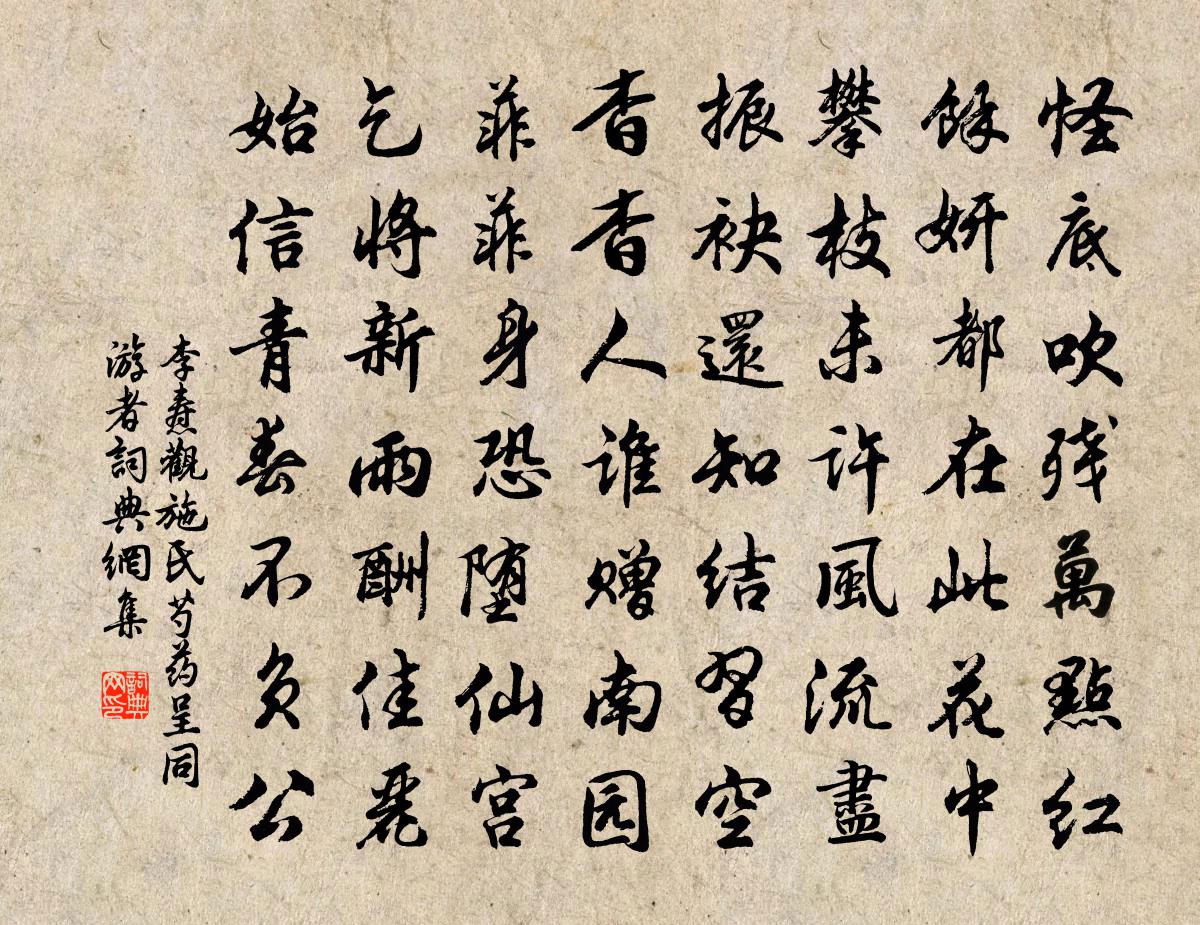 怪底吹残萬點红
餘妍都在此花中
攀枝未许風流盡
振袂還知结習空
杳杳人谁赠南园
菲菲身恐堕仙宫
乞將新雨酬佳麗
始信青春不负公
李燾觀施氏芍药呈同
游者詞典網集
詞典
网印